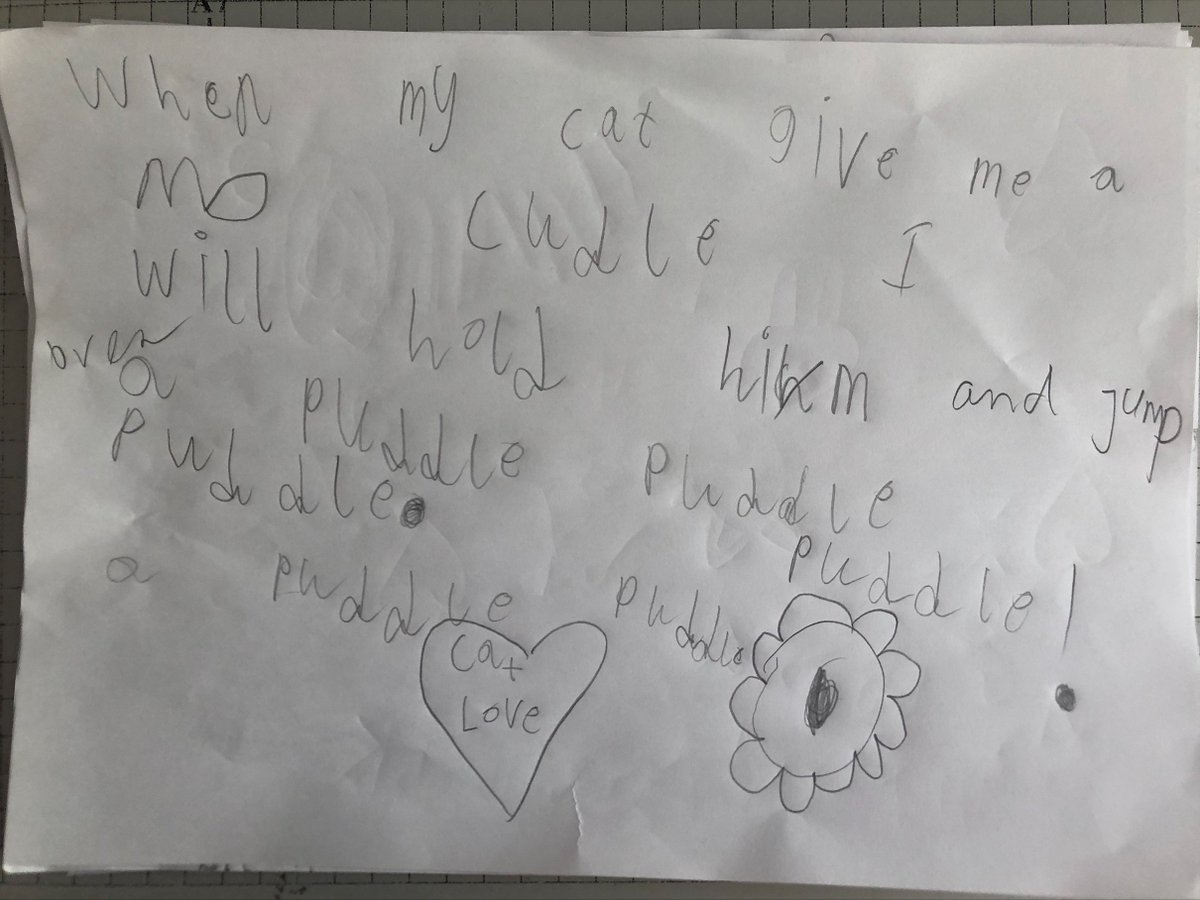 When my cat give me a
Mo cudle I
will hold him and jump
over
a puddle puddle
puddle.
a puddle puddle puddle!
Cat
Love